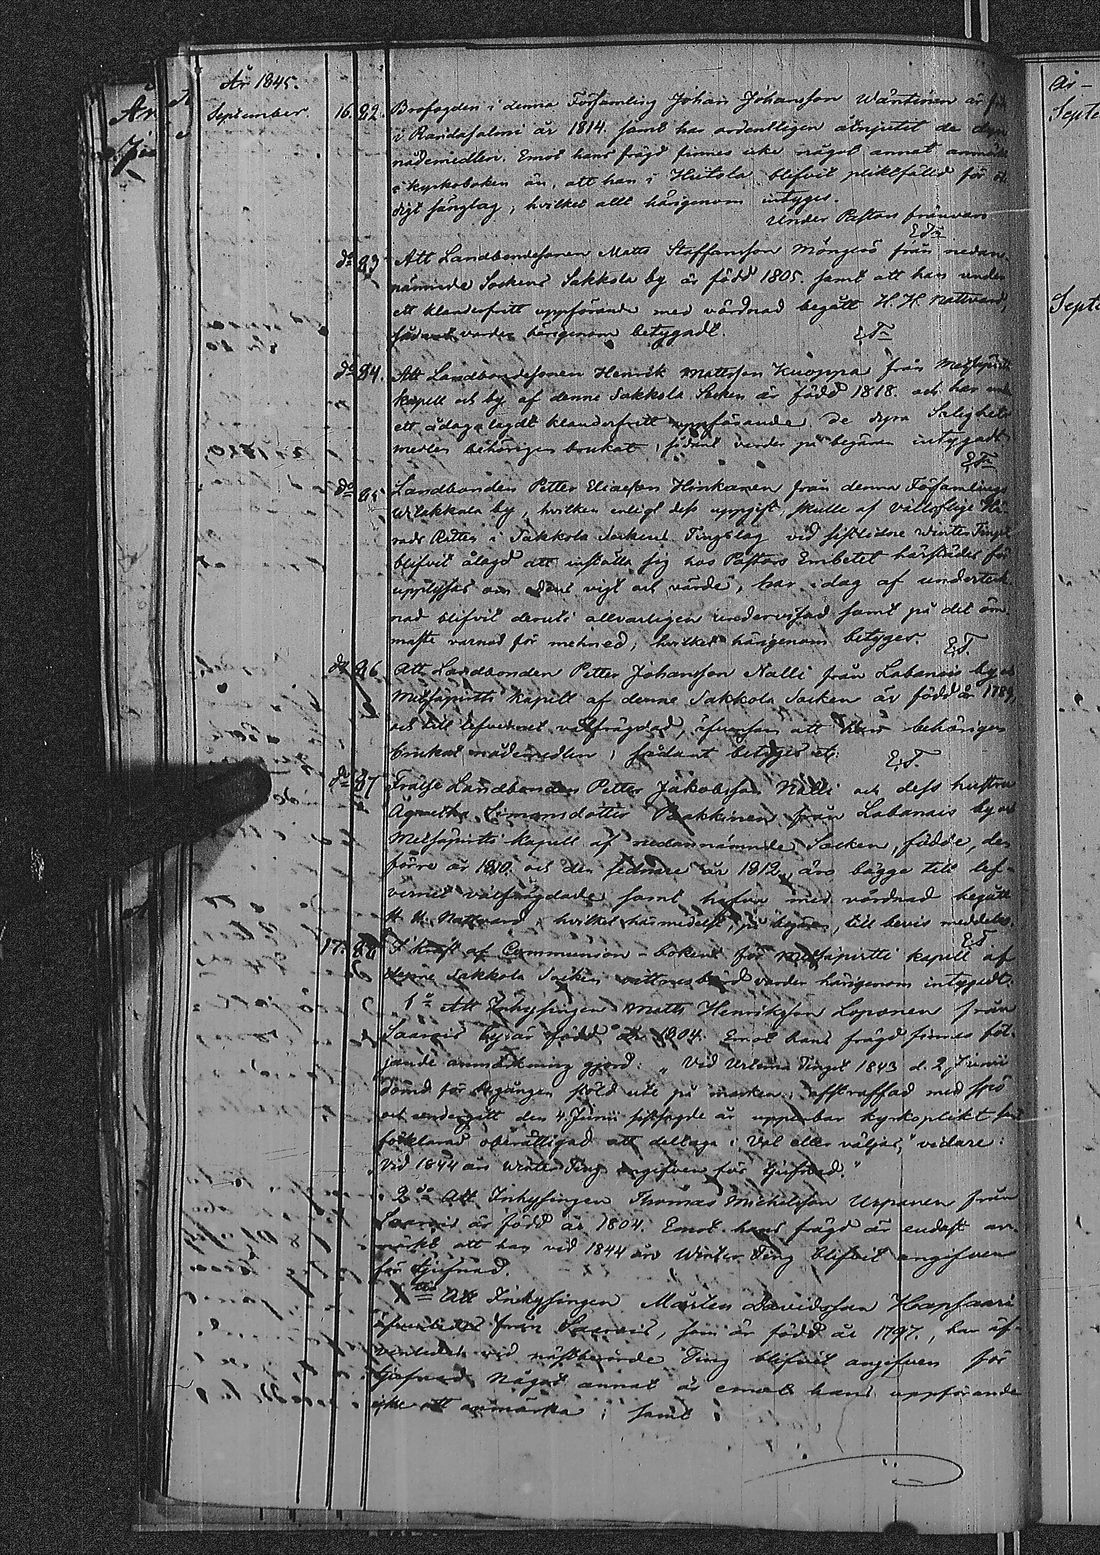 År 1845.
September. 16. 82. Brofogden i denna Församling Johan Johansson Wäntinen är född
i Randasalmi år 1814. samt har ordentligen åtnjutit de dyra
nådemedlen. Emot hans frägd finnes icke något annat anmärkt
i kyrkoboken än, att han i Hiitola blifvit pliktfälld för
digt sänglag, hvilket allt härigenom intygas.
Under Pastors frånvaro
do 83. Att Landbondesonen Matts Staffansson Mönger från nedan
nämnde Sockens Sakkola by är född 1805. samt att han under
ett klanderfritt uppförande med vårdnad begått H. H. Nattvard,
sådant varder härigenom betygadt. E.T.
do 84. Att Landbondesonen Henrik Mattsson Kuoppa från Metsäpirtti
kapell och by af denne Sakkola Socken är född 1818. och har under
ett ådagalagdt klanderfritt uppförande de dyra Salighets
medlen behörigen brukat, sådant varder på begäran intygadt
E.T.
do 85 Landbonden Petter Eliasson Hinkanen från denna Församlings
Wilakkala by, hvilken enligt dess uppgift, skulle af vällofliga Hä-
rads Rätten i Sakkola Sockens Tingslag vid sistlidne Winter Ting
blifvit ålagd att inställa sig hos Pastors Embetet härstädes för
upplysas om Edens vigt och värde, har i dag af underteck
nad blifvit deruti allvarligen undervisad samt på det öm
maste varnad för mehned; hvilket härigenom betyges. E.T.
do 86. Att Landbonden Petter Johansson Nalli från Labanais by och
Metsäpirtti Kapell af denne Sakkola Socken är född år 1789,
och till lefvernet välfrägdad, äfvensom att han behörigen
brukat nådemedlen, sådant betyges. E.T.
do 87 Frälse Landbonden Petter Jakobsson Nalli och dess hustru
Agnetha Simonsdotter Paakkinen från Labanais by och
Metsäpirtti Kapell af nedannämnde Socken, födde, den
förre år 1810. och den sednare år 1812., äro bägge till lef-
vernet välfrägdade, samt hafva med vårdnad begått
H. H. Nattvard, hvilket härmedelst, på begäran, till bevis meddelas.
E.T.
17. 88 I kraft af Communion-boken för Metsäpirtti kapell af
denne Sakkola Socken vittnesbörd varder härigenom intygadt:
1o Att Inhysingen Matts Henriksson Loponen från
Saarois by är född år 1804. Emot hans frägd finnes föl-
jande anmärkning gjord: "Vid Urtima Tinget 1843 d. 2 Junii
dömd för begången stöld ute på marken, afstraffad med spö
och undergått den 4 Junii sistsagde år uppenbar kyrkoplikt samt
förklarad oberättigad att deltaga i Val eller väljas," vidare:
"Vid 1844 års Winter Ting angifven för tjufnad."
2o Att Inhysingen Thomas Michelsson Urpanen från
Saarois är född år 1804. Emot hans frägd är endast an
märkt att han vid 1844 års Winter Ting blifvit angifven
för tjufnad.
Att Inhysingen Mårten Davidsson Hapsaari
från Saarois, som är född år 1797., har äf-
venledes vid nästberörde Ting blifvit angifven för
tjufnad. Något annat är emot hans uppförande
icke att anmärka; samt:
År-
Septe
Septe